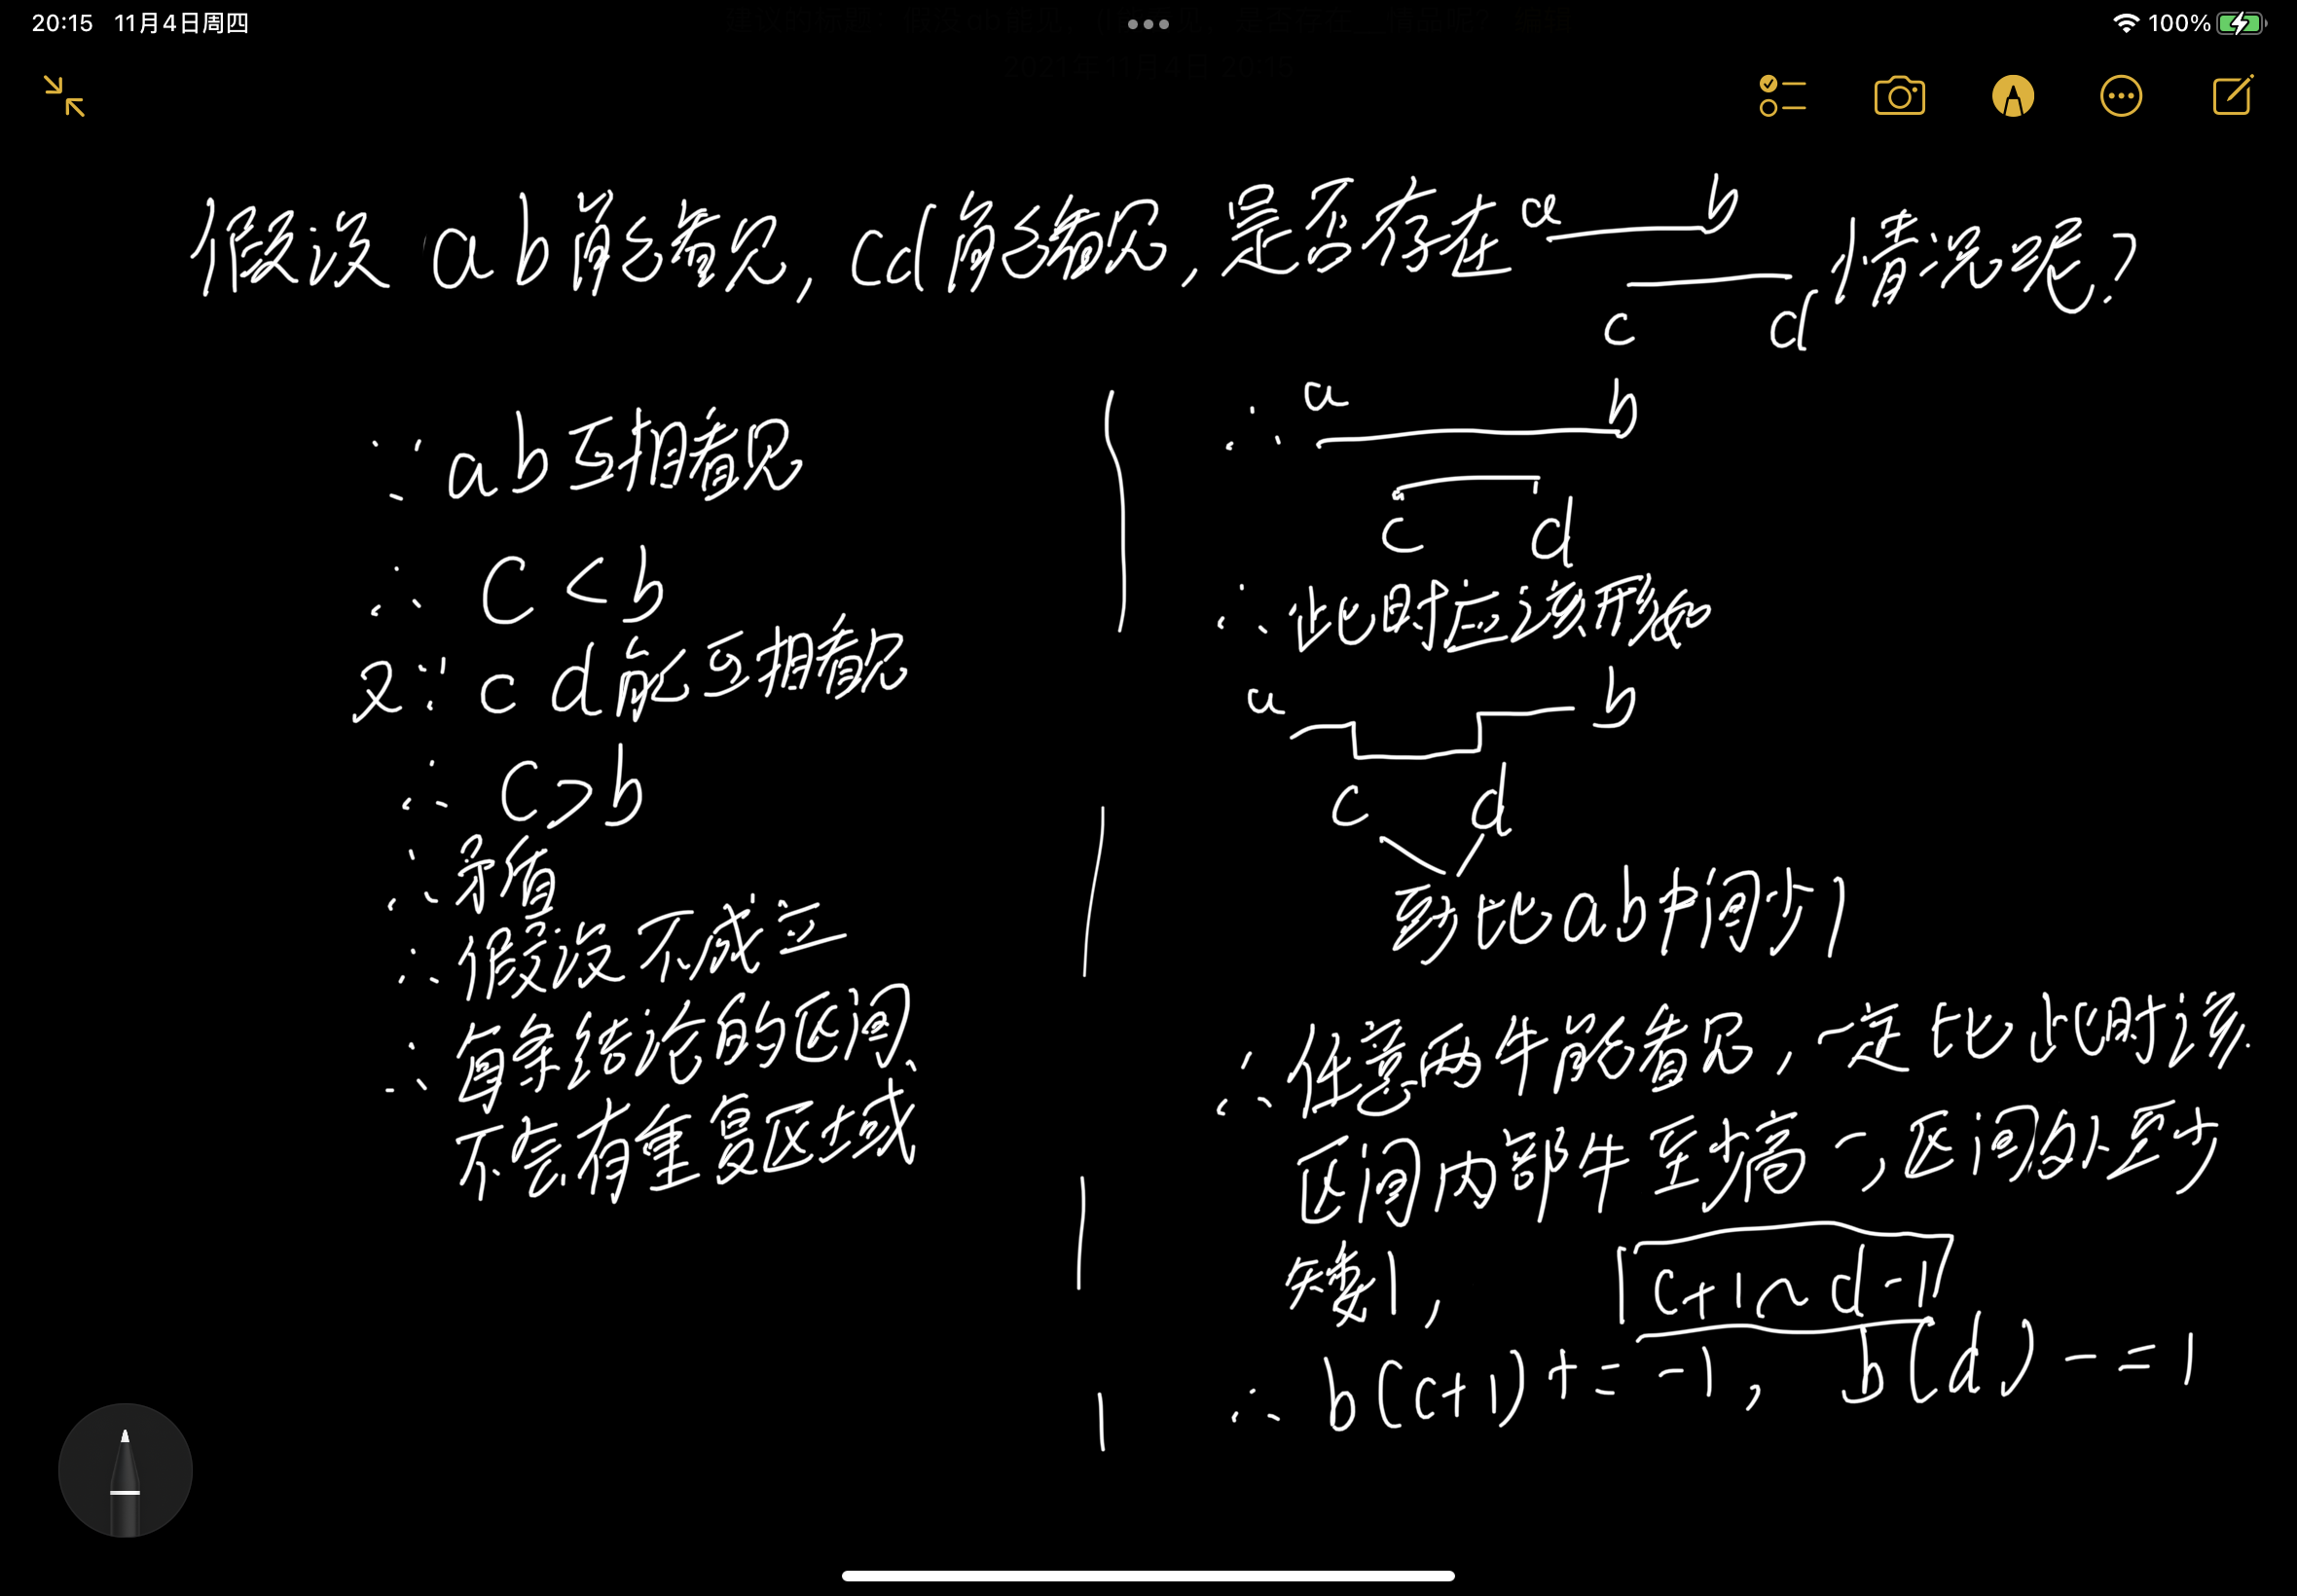 20:15 11月4日周四
100%
2021年11月4日 20:15
假设 ab能看见, cd能看见, 是否存在 a b 情况呢?
c d
∵ ab互相看见
∴ C < b
又∵ c d能互相看见
∴ C > b
∴ 矛盾
∴ 假设不成立
∴ 每条结论的区间
不会有重复区域
∴ a b
c d
∴ 此时应该形如
a b
c d
到比ab中间少1
∴ 任意两牛能看见, 一定比此时该
区间内部牛至少高一, 区间外至少
矮1,
c+1~d-1
∴ b(c+1) += -1, b(d) -= 1